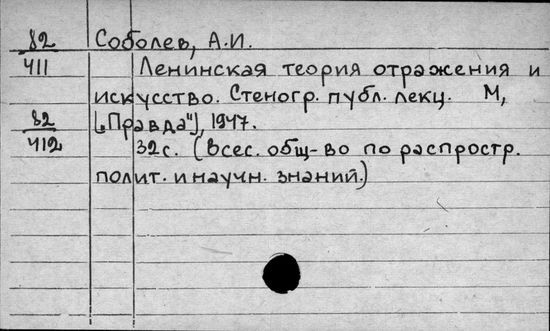 82 Соболев, А.И.
411 Ленинская теория отражения и
искусство. Стеногр. публ. лекц. М,
82 [„Правда"], 1947.
412 32с. (Всес. общ-во по распростр.
полит. и научн. знаний.)